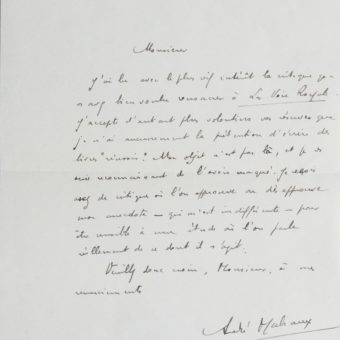 Monsieur
J'ai lu avec le plus vif intérêt la critique que
vous avez bien voulu consacrer à La Voie Royale.
J'accepte d'autant plus volontiers vos réserves que
je n'ai aucunement la prétention d'écrire des
livres "réussis". Mon objet n'est pas là, et je vous
suis reconnaissant de l'avoir marqué. Je
assez de critiques où l'on approuve ou désapprouve
mon anecdote — qui m'est indifférente — pour
être sensible à une étude où l'on parle
réellement de ce dont il s'agit.
Veuillez donc croire, Monsieur, à mes
remerciements
André Malraux